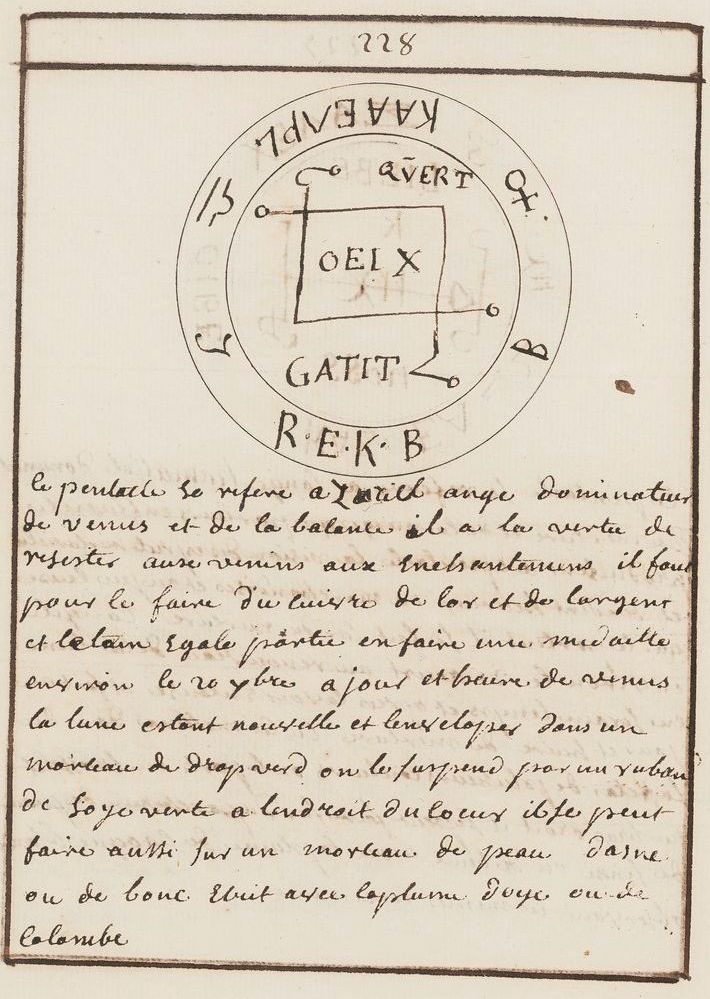 228
KAAEΛPL
♀
B
R·E·K·B
QVERT
OEIX
GATIT
le pentacle se refere a ange dominateur
de venus et de la balance il a la vertu de
resister ause venins aux Enchantemens il faut
pour le faire du cuivre de lor et de largent
et letain Egale partie en faire une medaille
environ le 20 7bre a jour et heure de venus
la lune estant nouvelle et lenveloper dans un
morceau de drap verd on le suspend par un ruban
de soye verte a lendroit du coeur il se peut
faire aussi sur un morceau de peau dasne
ou de bouc Ecrit avec laplume doye ou de
colombe